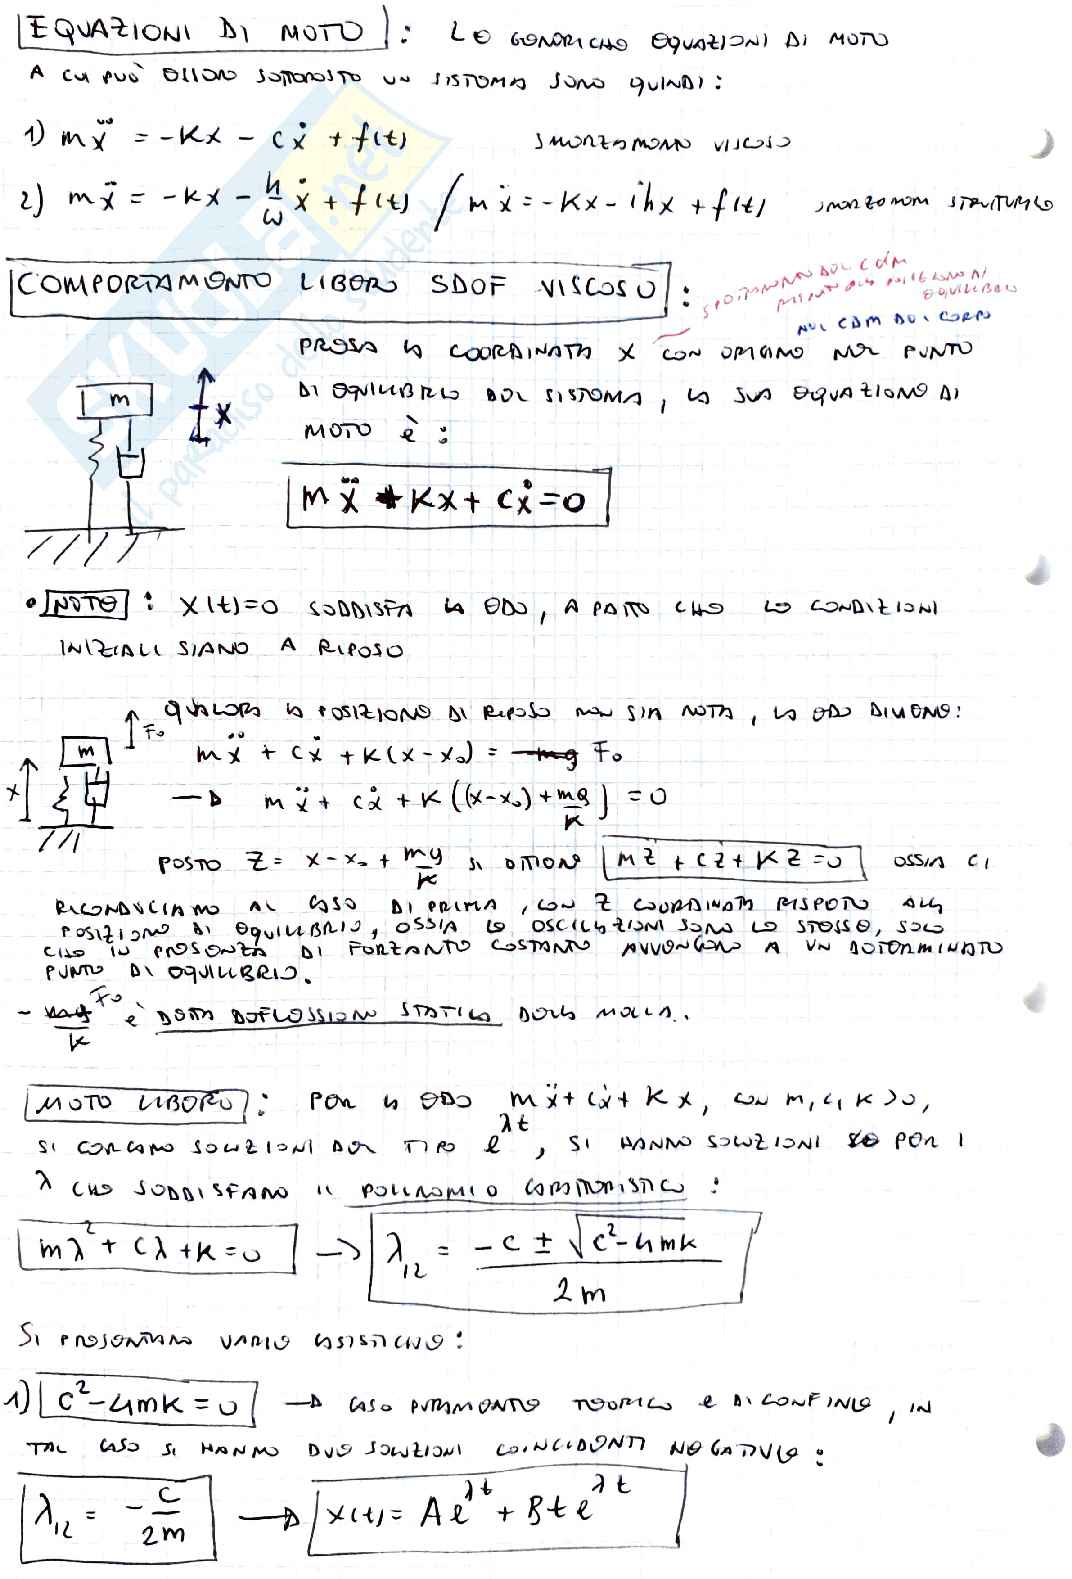 EQUAZIONI DI MOTO : LE GENERICHE EQUAZIONI DI MOTO
A CUI PUÒ ESSERE SOTTOPOSTO UN SISTEMA SONO QUINDI:
1) mẍ = -Kx - cẋ + f(t) SMORZAMENTO VISCOSO
2) mẍ = -Kx - h/ω ẋ + f(t) / mẍ = -Kx - ihx + f(t) SMORZAMENTO STRUTTURALE
COMPORTAMENTO LIBERO SDOF VISCOSO :
SPOSTAMENTO DEL CDM
RISPETTO ALLA POSIZIONE DI
EQUILIBRIO
NEL CDM DEL CORPO
PRESA LA COORDINATA X CON ORIGINE NEL PUNTO
DI EQUILIBRIO DEL SISTEMA, LA SUA EQUAZIONE DI
MOTO È :
m
X
mẍ + Kx + cẋ = 0
• NOTE : X(t)=0 SODDISFA LA ODE, A PATTO CHE LE CONDIZIONI
INIZIALI SIANO A RIPOSO
QUALORA LA POSIZIONE DI RIPOSO NON SIA NOTA, LA ODE DIVIENE:
F₀
m
X
mẍ + cẋ + K(x-x₀) = -mg F₀
→ mẍ + cẋ + K((x-x₀) + mg/K) = 0
POSTO Z = x-x₀ + mg/K SI OTTIENE mz̈ + cż + KZ = 0 OSSIA CI
RICONDUCIAMO AL CASO DI PRIMA, CON Z COORDINATA RISPETTO ALLA
POSIZIONE DI EQUILIBRIO, OSSIA LE OSCILLAZIONI SONO LE STESSE, SOLO
CHE IN PRESENZA DI FORZANTE COSTANTE AVVENGONO A UN DETERMINATO
PUNTO DI EQUILIBRIO.
- mg F₀/K È DETTA DEFLESSIONE STATICA DELLA MOLLA.
MOTO LIBERO : PER LA ODE mẍ + cẋ + Kx, CON m, c, K > 0,
SI CERCANO SOLUZIONI DEL TIPO e^λt, SI HANNO SOLUZIONI PER I
λ CHE SODDISFANO IL POLINOMIO CARATTERISTICO :
mλ² + cλ + K = 0 → λ₁₂ = (-c ± √(c²-4mK)) / 2m
SI PRESENTANO VARIE CASISTICHE :
1) c² - 4mK = 0 → CASO PURAMENTE TEORICO E DI CONFINE, IN
TAL CASO SI HANNO DUE SOLUZIONI COINCIDENTI NEGATIVE :
λ₁₂ = -c/2m → X(t) = Ae^λt + Bte^λt
SKUOLA.net
il paradiso dello studente